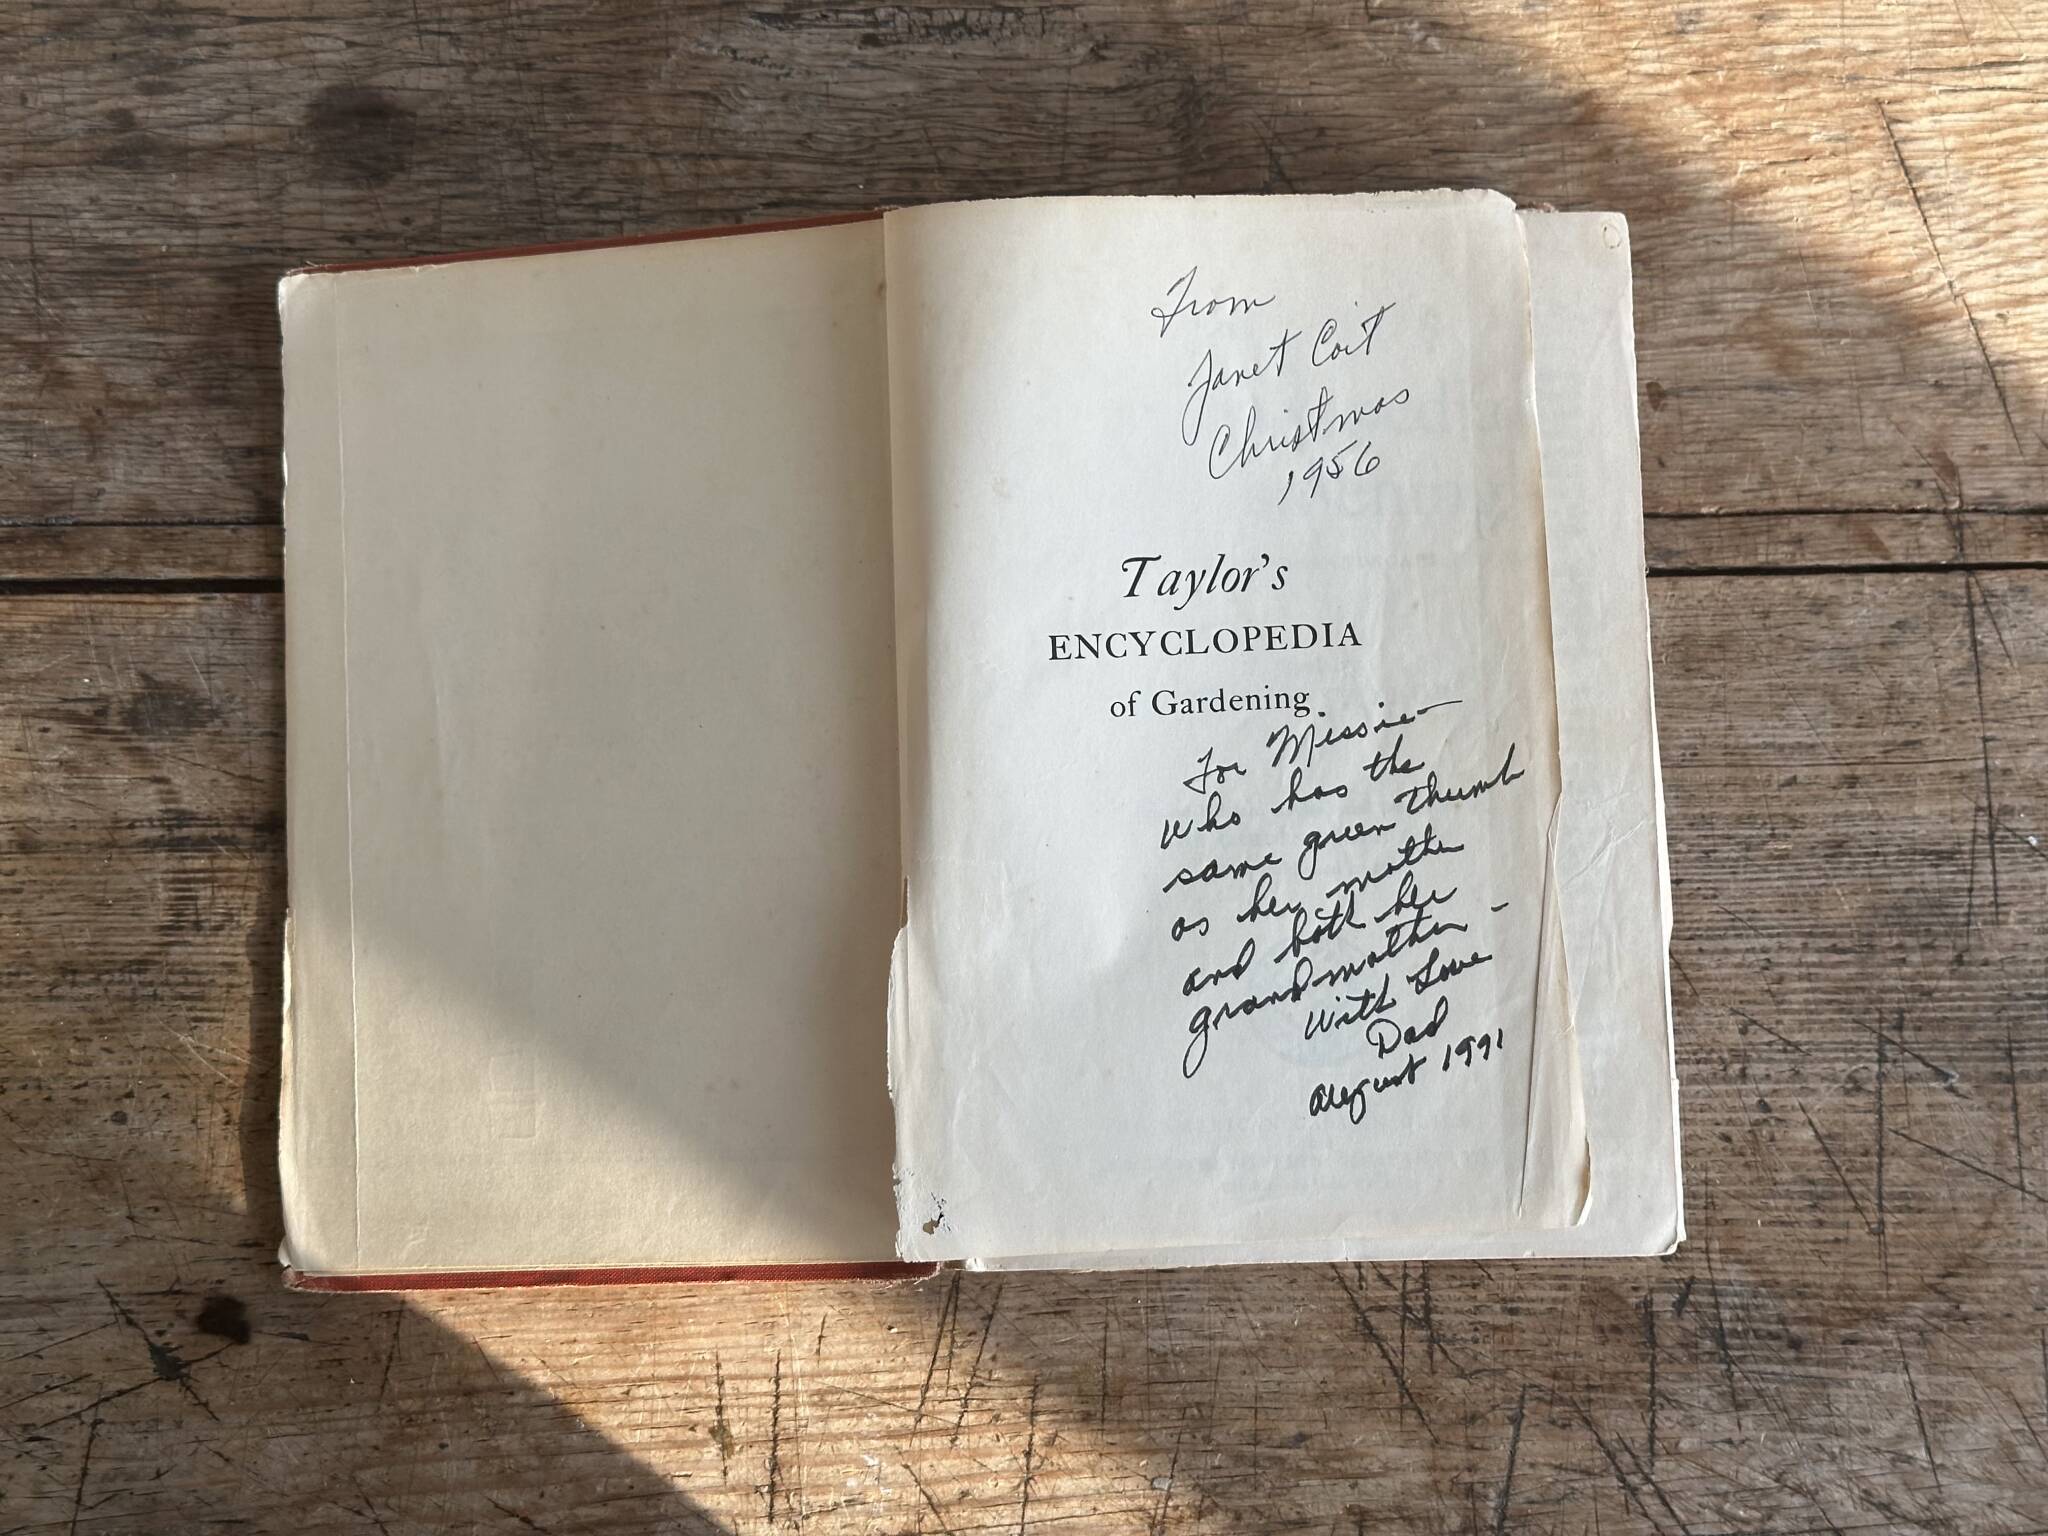 From
Janet Coit
Christmas
1956
Taylor's
ENCYCLOPEDIA
of Gardening
For Missie—
who has the
same green thumb
as her mother
and both her
grandmother -
With Love
Dad
August 1991